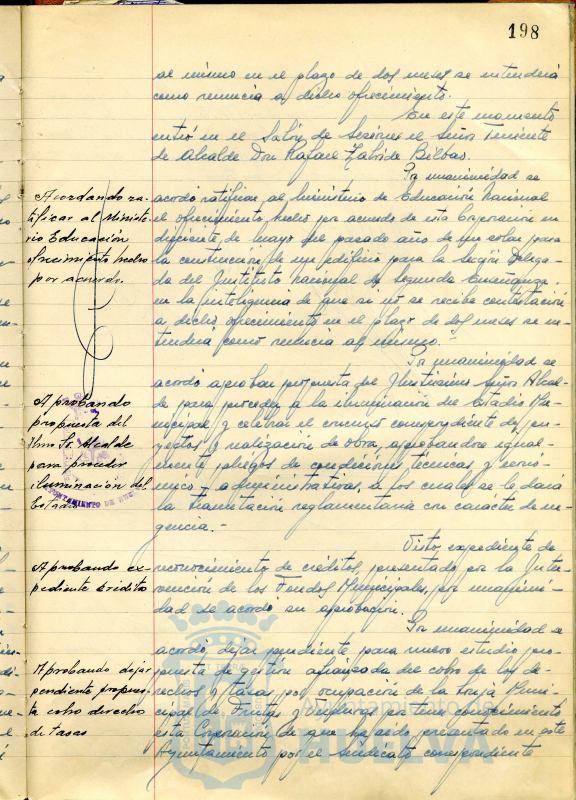 198
al mismo en el plazo de dos meses se entenderá
como renuncia a dicho ofrecimiento.
En este momento
entró en el Salón de Sesiones el Señor Teniente
de Alcalde Don Rafael Bilbao.
Por unanimidad se
Acordando ra-
tificar al Ministe-
rio Educación
ofrecimiento hecho
por acuerdo.
acordó ratificar al Ministerio de Educación Nacional
el ofrecimiento hecho por acuerdo de esta Corporación en
diecisiete de mayo del pasado año de un solar para
la construcción de un edificio para la Sección Delega-
da del Instituto Nacional de Segunda Enseñanza.
en la inteligencia de que si no se recibe contestación
a dicho ofrecimiento en el plazo de dos meses se en-
tenderá como renuncia al mismo.-
Por unanimidad se
Aprobando
propuesta del
Ilmo Sr. Alcalde
para proceder
iluminación del
Estadio
AYUNTAMIENTO DE
acordó aprobar propuesta del Ilustrísimo Señor Alcal-
de para proceder a la iluminación del Estadio Mu-
nicipal y celebrar el concurso correspondiente de pro-
yectos y realización de obra, aprobándose igual-
mente pliegos de condiciones técnicas y econó-
mico-administrativas, a los cuales se le dará
la tramitación reglamentaria con carácter de ur-
gencia.-
Visto expediente de
Aprobando ex-
pediente crédito
reconocimiento de créditos, presentado por la Inter-
vención de los Fondos Municipales, por unanimi-
dad se acordó su aprobación.
Por unanimidad se
Aprobando dejar
pendiente propues-
ta cobro derecho
de tasas
acordó dejar pendiente para nuevo estudio pro-
puesta de gestión afianzada del cobro de los de-
rechos y tasas por ocupación de la Lonja Muni-
cipal de Frutas y Verduras por tener conocimiento
esta Corporación de que ha sido presentado en este
Ayuntamiento por el Sindicato correspondiente
Ayuntamiento de